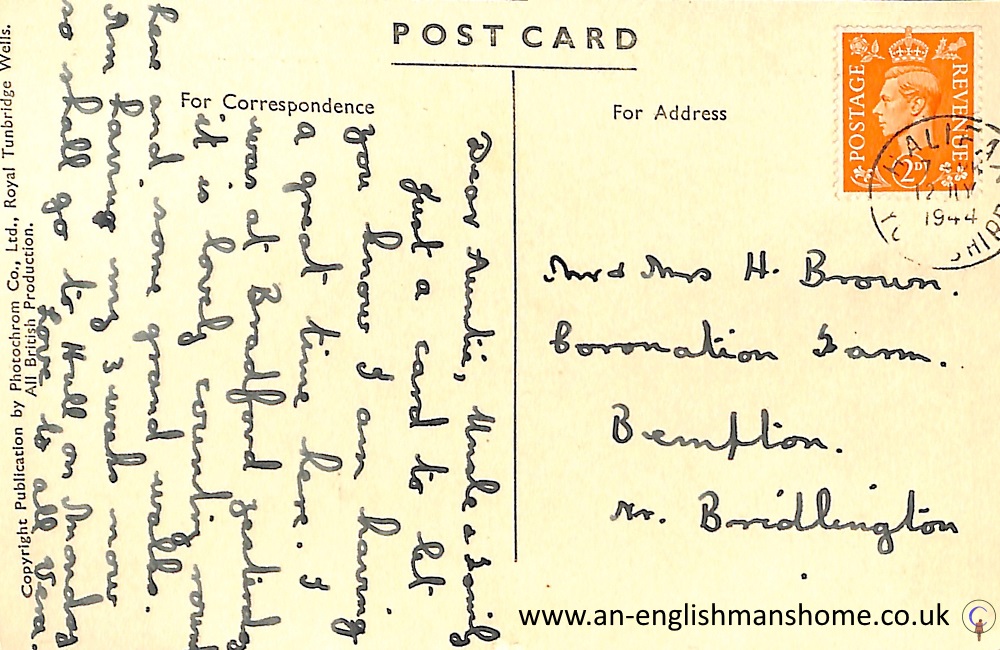 POST CARD
For Correspondence
For Address
POSTAGE
REVENUE
2D
HALIFAX
1944
Dear Auntie, Uncle & Family
Just a card to let
you know I am having
a great time here. I
was at Bradford yesterday
it is lovely country round
here and some grand walks.
Am having my 3 weeks now
so shall go to Hull on Monday
Love to all Vera.
Mr & Mrs H. Brown.
Coronation Farm.
Bempton.
Nr. Bridlington
Copyright Publication by Photochrom Co., Ltd., Royal Tunbridge Wells.
All British Production.
www.an-englishmanshome.co.uk